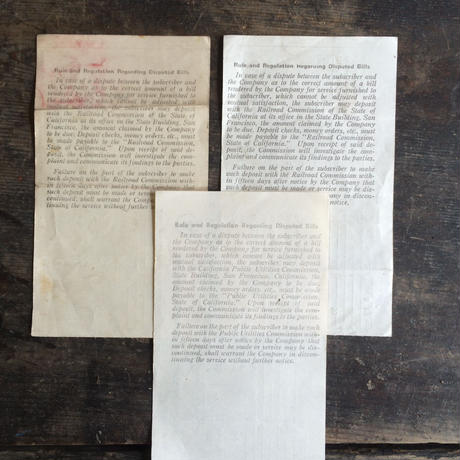 Rule and Regulation Regarding Disputed Bills
In case of a dispute between the subscriber and
the Company as to the correct amount of a bill
rendered by the Company for service furnished to
the subscriber, which cannot be adjusted with
mutual satisfaction, the subscriber may deposit
with the Railroad Commission of the State of
California at its office in the State Building, San
Francisco, the amount claimed by the Company to
be due. Deposit checks, money orders, etc., must
be made payable to the "Railroad Commission,
State of California." Upon receipt of said de-
posit, the Commission will investigate the com-
plaint and communicate its findings to the parties.
Failure on the part of the subscriber to make
such deposit with the Railroad Commission with-
in fifteen days after notice by the Company that
such deposit must be made or service may be dis-
continued, shall warrant the Company in
discontinuing the service without further
Rule and Regulation Regarding Disputed Bills
In case of a dispute between the subscriber and
the Company as to the correct amount of a bill
rendered by the Company for service furnished to
the subscriber, which cannot be adjusted with
mutual satisfaction, the subscriber may deposit
with the Railroad Commission of the State of
California at its office in the State Building, San
Francisco, the amount claimed by the Company to
be due. Deposit checks, money orders, etc., must
be made payable to the "Railroad Commission,
State of California." Upon receipt of said de-
posit, the Commission will investigate the com-
plaint and communicate its findings to the parties.
Failure on the part of the subscriber to make
such deposit with the Railroad Commission with-
in fifteen days after notice by the Company that
such deposit must be made or service may be
Company in discon-
notice.
Rule and Regulation Regarding Disputed Bills
In case of a dispute between the subscriber and
the Company as to the correct amount of a bill
rendered by the Company for service furnished to
the subscriber, which cannot be adjusted with
mutual satisfaction, the subscriber may deposit
with the California Public Utilities Commission,
State Building, San Francisco, California, the
amount claimed by the Company to be due.
Deposit checks, money orders, etc., must be made
payable to the "Public Utilities Commission,
State of California." Upon receipt of said
deposit, the Commission will investigate the com-
plaint and communicate its findings to the parties.
Failure on the part of the subscriber to make such
deposit with the Public Utilities Commission with-
in fifteen days after notice by the Company that
such deposit must be made or service may be dis-
continued, shall warrant the Company in discon-
tinuing the service without further notice.